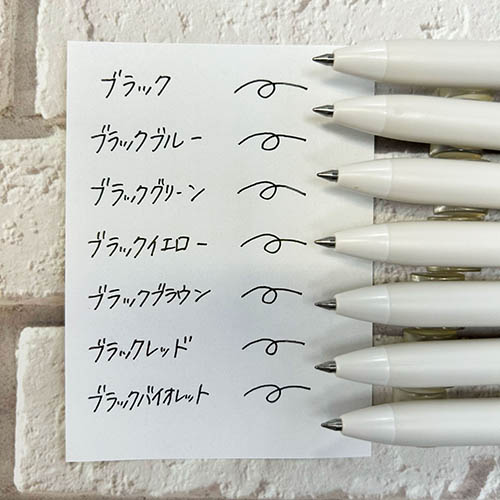 ブラック
ブラックブルー
ブラックグリーン
ブラックイエロー
ブラックブラウン
ブラックレッド
ブラックバイオレット